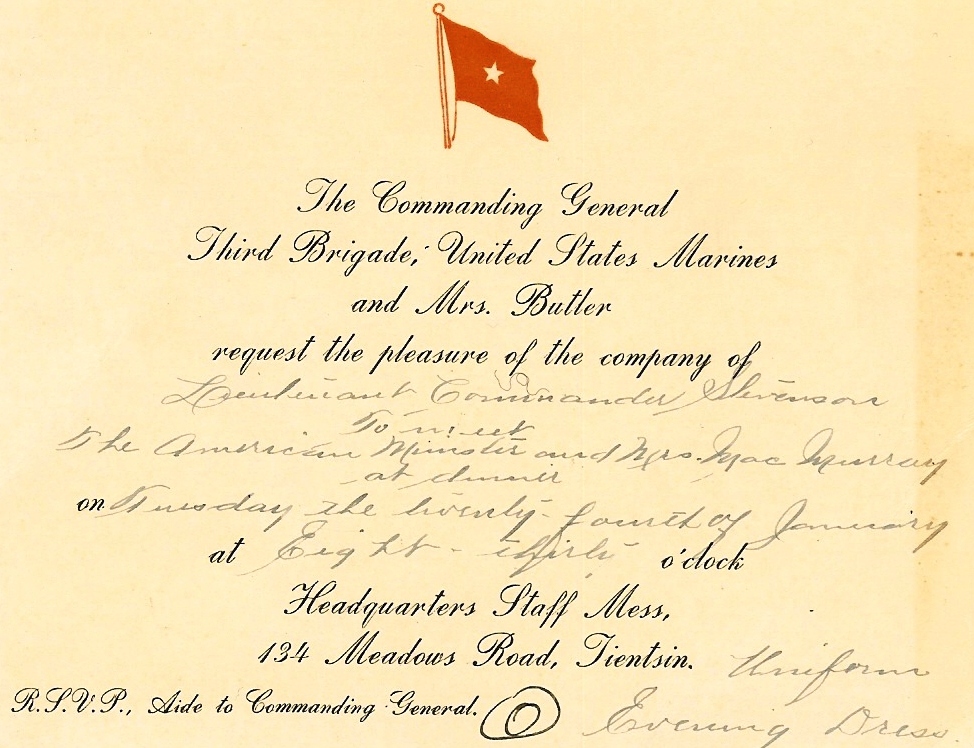 The Commanding General
Third Brigade, United States Marines
and Mrs. Butler
request the pleasure of the company of
Lieutenant Commander Stevenson
To meet
The American Minister and Mrs. Mac Murray
at dinner
on Tuesday the twenty-fourth of January
at Eight-thirty o'clock
Headquarters Staff Mess,
134 Meadows Road, Tientsin.
Uniform
R.S.V.P., Aide to Commanding General.
Evening Dress.